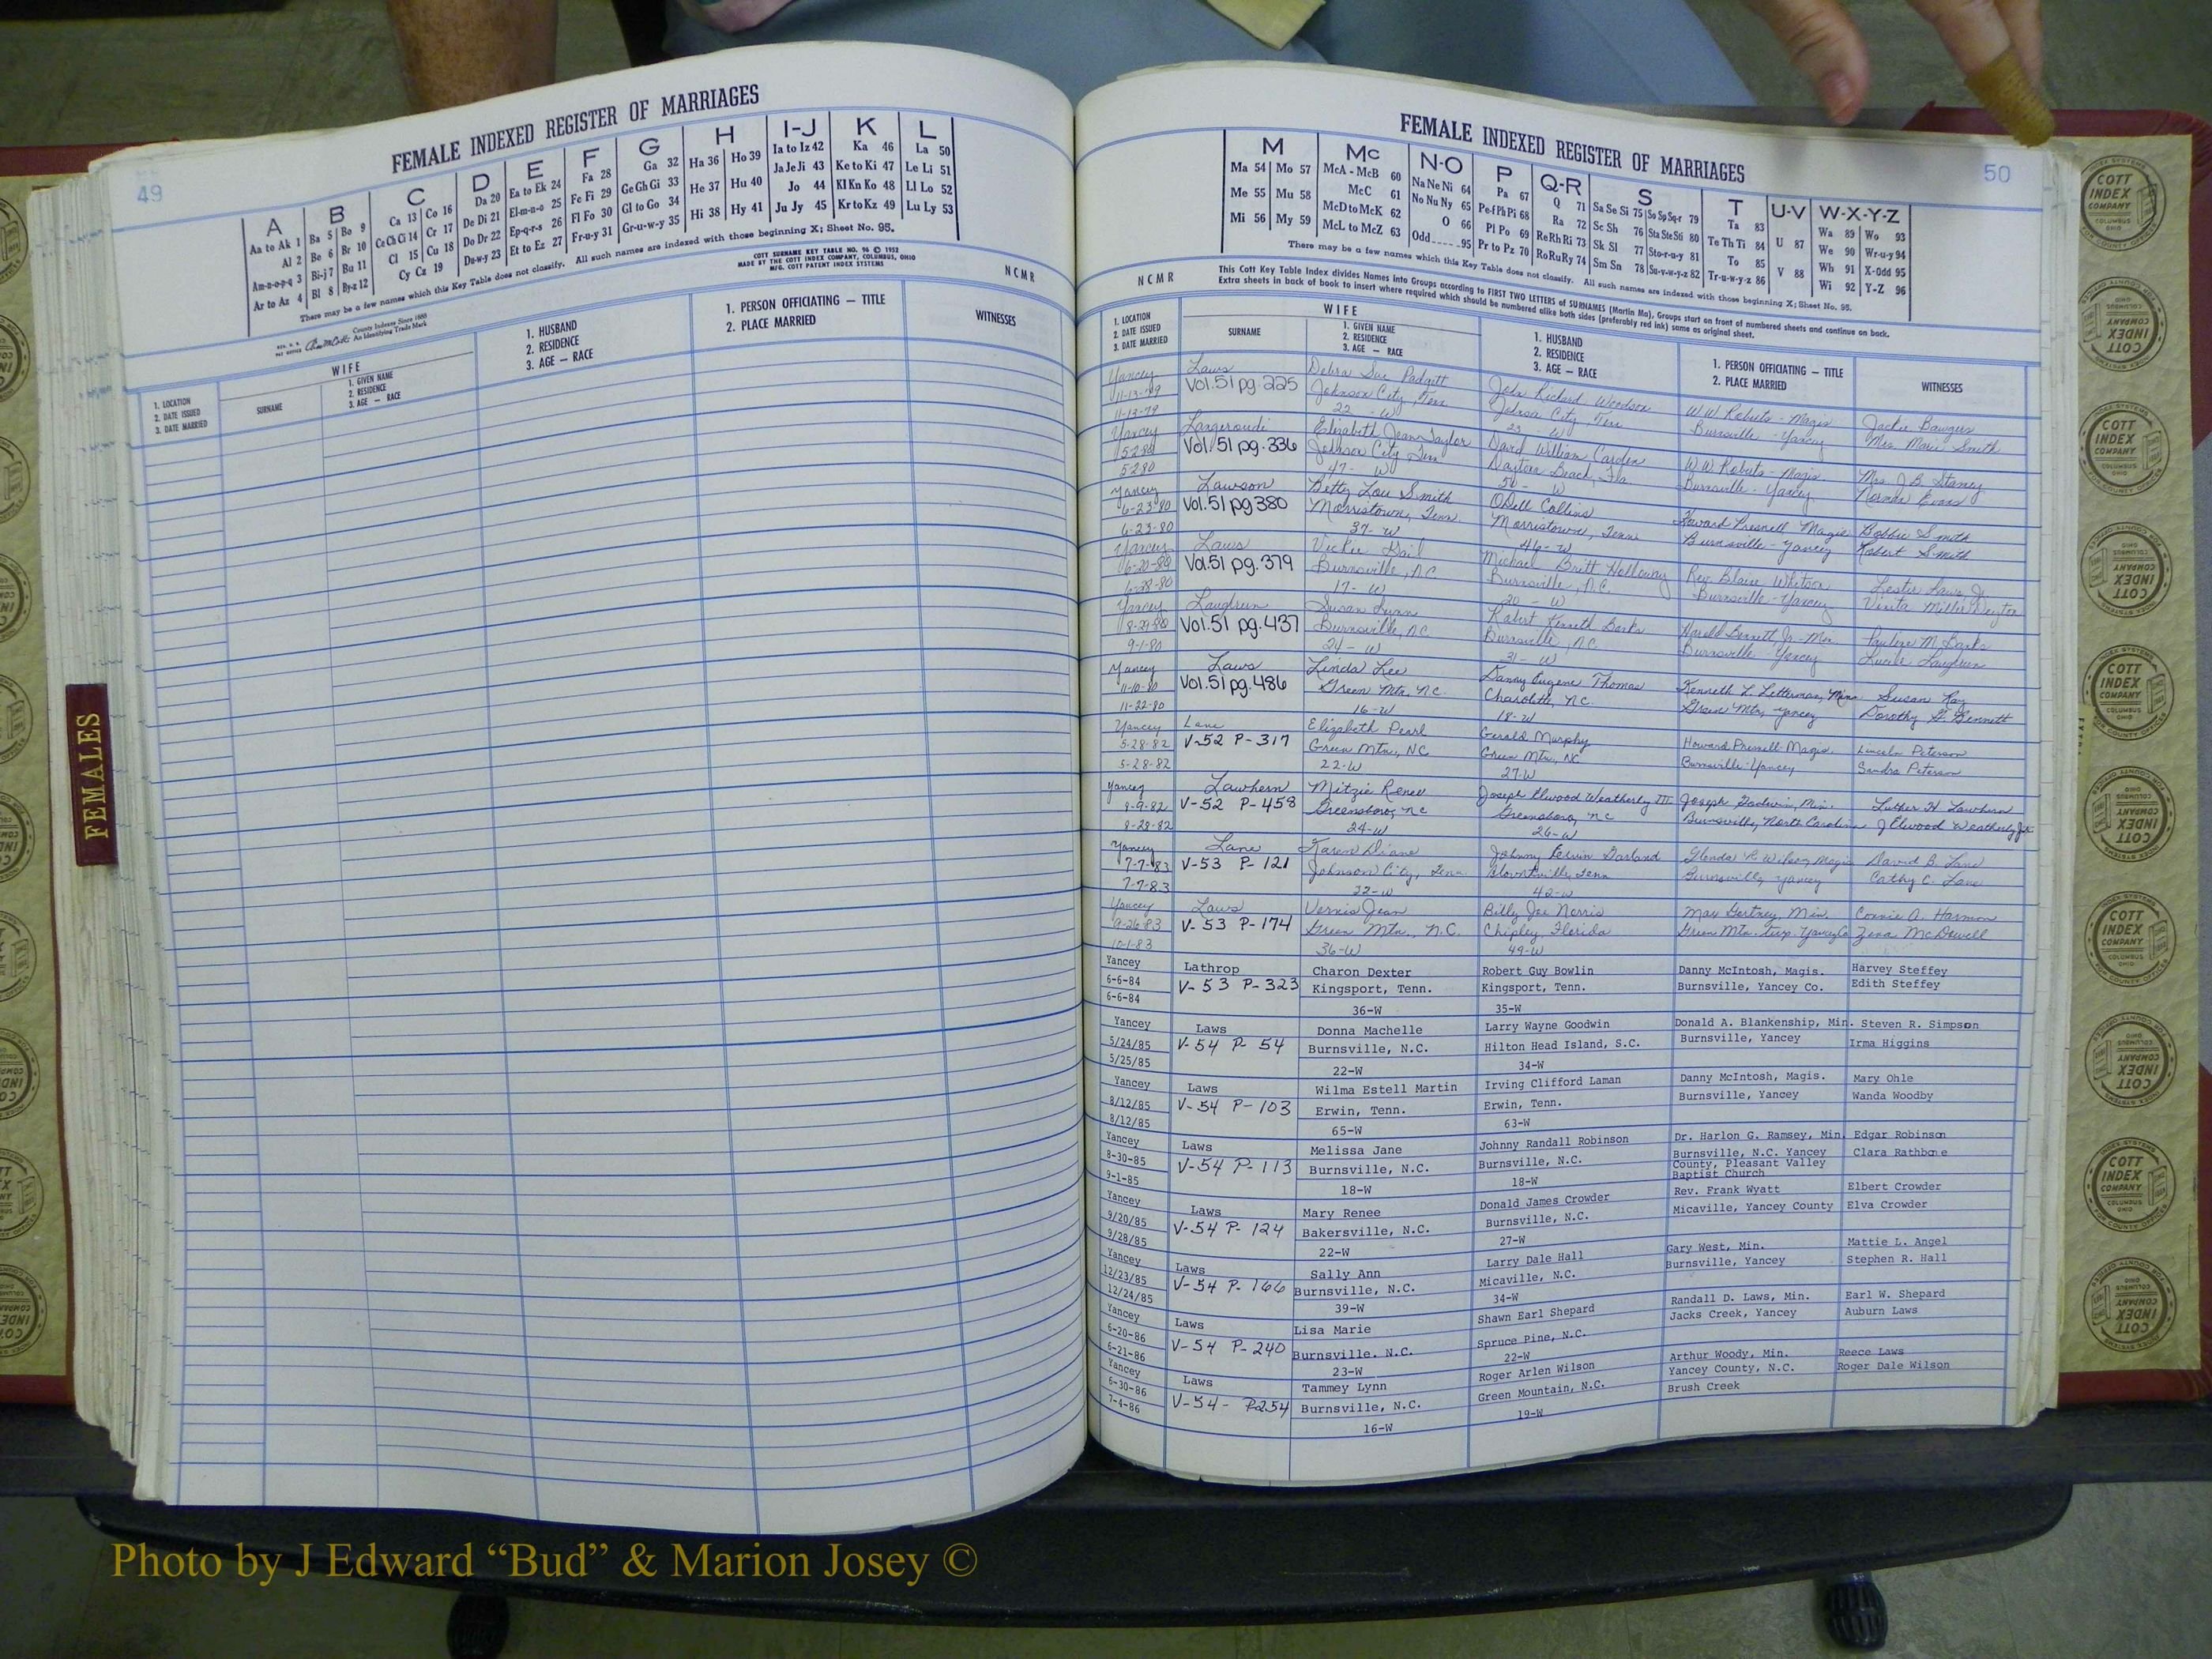 49
FEMALE INDEXED REGISTER OF MARRIAGES
A B C D E F G H I-J K L
Aa to Ak 1 Ba 5 Bo 9 Ca 13 Co 16 Da 20 Ea to Ek 24 Fa 28 Ga 32 Ha 36 Ho 39 Ia to Iz 42 Ka 46 La 50
Al 2 Be 6 Br 10 Ce Ch Ci 14 Cr 17 De Di 21 El-m-n-o 25 Fe Fi 29 Ge Gh Gi 33 He 37 Hu 40 Ja Je Ji 43 Ke to Ki 47 Le Li 51
Am-n-o-p-q 3 Bi-j 7 Bu 11 Cl 15 Cu 18 Do Dr 22 Ep-q-r-s 26 Fl Fo 30 Gl to Go 34 Hi 38 Hy 41 Jo 44 Kl Kn Ko 48 Ll Lo 52
Ar to Az 4 Bl 8 By-z 12 Cy Cz 19 Du-w-y 23 Et to Ez 27 Fr-u-y 31 Gr-u-w-y 35 Ju Jy 45 Kr to Kz 49 Lu Ly 53
There may be a few names which this Key Table does not classify. All such names are indexed with those beginning X; Sheet No. 95.
COTT SURNAME KEY TABLE NO. 96 © 1952
MADE BY THE COTT INDEX COMPANY, COLUMBUS, OHIO
MFG. COTT PATENT INDEX SYSTEMS
County Indexes Since 1880
An Identifying Trade Mark
N C M R
1. LOCATION
2. DATE ISSUED
3. DATE MARRIED
WIFE
SURNAME
1. GIVEN NAME
2. RESIDENCE
3. AGE — RACE
1. HUSBAND
2. RESIDENCE
3. AGE — RACE
1. PERSON OFFICIATING — TITLE
2. PLACE MARRIED
WITNESSES
FEMALES
50
FEMALE INDEXED REGISTER OF MARRIAGES
M Mc N-O P Q-R S T U-V W-X-Y-Z
Ma 54 Mo 57 McA - McB 60 Na Ne Ni 64 Pa 67 Q 71 Sa Se Si 75 So Sp Sq-r 79 Ta 83 U 87 Wa 89 Wo 93
Me 55 Mu 58 McC 61 No Nu Ny 65 Pe-f Ph Pi 68 Ra 72 Sc Sh 76 Sta Ste Sti 80 Te Th Ti 84 V 88 We 90 Wr-u-y 94
Mi 56 My 59 McD to McK 62 O 66 Pl Po 69 Re Rh Ri 73 Sk Sl 77 Sto-r-u-y 81 To 85 Wh 91 X-Odd 95
McL to McZ 63 Odd 95 Pr to Pz 70 Ro Ru Ry 74 Sm Sn 78 Su-v-w-y-z 82 Tr-u-w-y-z 86 Wi 92 Y-Z 96
There may be a few names which this Key Table does not classify. All such names are indexed with those beginning X; Sheet No. 95.
N C M R
This Cott Key Table Index divides Names into Groups according to FIRST TWO LETTERS of SURNAMES (Martin Ma), Groups start on front of numbered sheets and continue on back.
Extra sheets in back of book to insert where required which should be numbered alike both sides (preferably red ink) same as original sheet.
1. LOCATION
2. DATE ISSUED
3. DATE MARRIED
WIFE
SURNAME
1. GIVEN NAME
2. RESIDENCE
3. AGE — RACE
1. HUSBAND
2. RESIDENCE
3. AGE — RACE
1. PERSON OFFICIATING — TITLE
2. PLACE MARRIED
WITNESSES
Yancey Laws Debra Sue Padgett John Richard Woodson W W Roberts - Magis Jackie
11-13-79 Vol. 51 pg. 225 Johnson City, Tenn Johnson City Tenn Burnsville - Yancey Mrs. Marie Smith
11-13-79 22 - W 23 W
Yancey Langeroudi Elizabeth Jean Taylor David William Carden W W Roberts - Magis Mrs. J. B. Stamey
5 2 80 Vol. 51 pg. 336 Johnson City Tenn Daytona Beach, Fla Burnsville - Yancey Norma Evans
5 2 80 47 - W 50 - W
Yancey Lawson Betty Lou Smith ODell Collins Howard Presnell Magis Bobbie Smith
6-23-80 Vol. 51 pg 380 Morristown, Tenn. Morristown, Tenn Burnsville - Yancey Robert Smith
6-23-80 37 - W 46 - W
Yancey Laws Vickie Gail Michael Britt Holloway Rev Blaine Whitson Lester Laws Jr
6-20-80 Vol. 51 pg. 379 Burnsville, NC Burnsville, N.C. Burnsville - Yancey Vinita Miller Deyton
6-28-80 17 - W 20 - W
Yancey Laughrun Susan Lynn Robert Kenneth Banks Harold Bennett Jr - Min Pauline M. Banks
8-29-80 Vol. 51 pg. 437 Burnsville, NC Burnsville, NC Burnsville - Yancey Lucile Laughrun
9-1-80 24 - W 21 - W
Yancey Laws Linda Lee Danny Eugene Thomas Kenneth L. Letterman, Min Susan Ray
11-10-80 Vol. 51 pg. 486 Green Mtn. N.C. Charlotte, N.C. Green Mtn, Yancey Dorothy G. Bennett
11-22-80 16-W 18-W
Yancey Lane Elizabeth Pearl Gerald Murphy Howard Presnell-Magis. Lincoln Peterson
5-28-82 V-52 P-317 Green Mtn., NC Green Mtn., NC Burnsville-Yancey Sandra Peterson
5-28-82 22-W 27-W
Yancey Lawhern Mitzie Renee Joseph Elwood Weatherly III Joseph Godwin, Min. Luther H Lawhern
8-9-82 V-52 P-458 Greensboro, NC Greensboro, NC Burnsville, North Carolina J Elwood Weatherly Jr
8-28-82 24-W 26-W
Yancey Lane Karen Diane Johnny Kelvin Garland Glenda R Wilson Magis David B. Lane
7-7-83 V-53 P-121 Johnson City, Tenn. Blountville, Tenn Burnsville, Yancey Cathy C. Lane
7-7-83 22-W 42-W
Yancey Laws Vernia Jean Billy Joe Norris Max Gortney, Min. Connie A. Harmon
9-26-83 V-53 P-174 Green Mtn., N.C. Chipley, Florida Green Mtn. twp. Yancey Co Zena McDowell
10-1-83 36-W 49-W
Yancey Lathrop Charon Dexter Robert Guy Bowlin Danny McIntosh, Magis. Harvey Steffey
6-6-84 V-53 P-323 Kingsport, Tenn. Kingsport, Tenn. Burnsville, Yancey Co. Edith Steffey
6-6-84 36-W 35-W
Yancey Laws Donna Machelle Larry Wayne Goodwin Donald A. Blankenship, Min. Steven R. Simpson
5/24/85 V-54 P-54 Burnsville, N.C. Hilton Head Island, S.C. Burnsville, Yancey Irma Higgins
5/25/85 22-W 34-W
Yancey Laws Wilma Estell Martin Irving Clifford Laman Danny McIntosh, Magis. Mary Ohle
8/12/85 V-54 P-103 Erwin, Tenn. Erwin, Tenn. Burnsville, Yancey Wanda Woodby
8/12/85 65-W 63-W
Yancey Laws Melissa Jane Johnny Randall Robinson Dr. Harlon G. Ramsey, Min. Edgar Robinson
8-30-85 V-54 P-113 Burnsville, N.C. Burnsville, N.C. Burnsville, N.C. Yancey Clara Rathbone
County, Pleasant Valley
Baptist Church
9-1-85 18-W 18-W
Yancey Laws Mary Renee Donald James Crowder Rev. Frank Wyatt Elbert Crowder
9/20/85 V-54 P-124 Bakersville, N.C. Burnsville, N.C. Micaville, Yancey County Elva Crowder
9/28/85 22-W 27-W
Yancey Laws Sally Ann Larry Dale Hall Gary West, Min. Mattie L. Angel
12/23/85 V-54 P-166 Burnsville, N.C. Micaville, N.C. Burnsville, Yancey Stephen R. Hall
12/24/85 39-W 34-W
Yancey Laws Lisa Marie Shawn Earl Shepard Randall D. Laws, Min. Earl W. Shepard
6-20-86 V-54 P-240 Burnsville. N.C. Spruce Pine, N.C. Jacks Creek, Yancey Auburn Laws
6-21-86 23-W 22-W
Yancey Laws Tammey Lynn Roger Arlen Wilson Arthur Woody, Min. Reece Laws
6-30-86 V-54- P-254 Burnsville, N.C. Green Mountain, N.C. Yancey County, N.C. Roger Dale Wilson
7-4-86 16-W 19-W Brush Creek
COTT INDEX COMPANY COLUMBUS OHIO
INDEX SYSTEMS FOR COUNTY OFFICES
Photo by J Edward “Bud” & Marion Josey ©